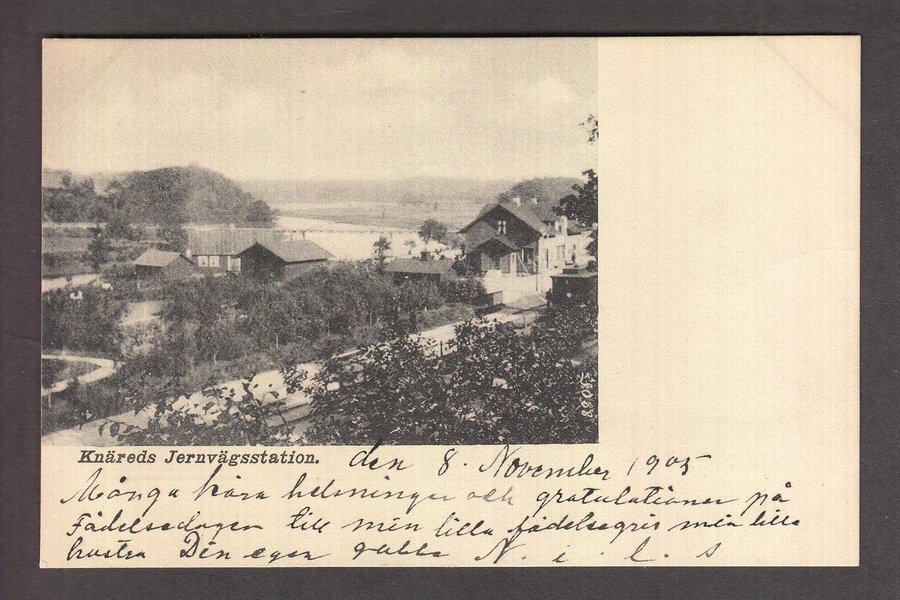 88085
Knäreds Jernvägsstation. den 8. November 1905
Många kära helsningar och gratulationer på
Födelsedagen till min lilla födelsegris min lilla
hustru Din egen gubbe N. i. l. s